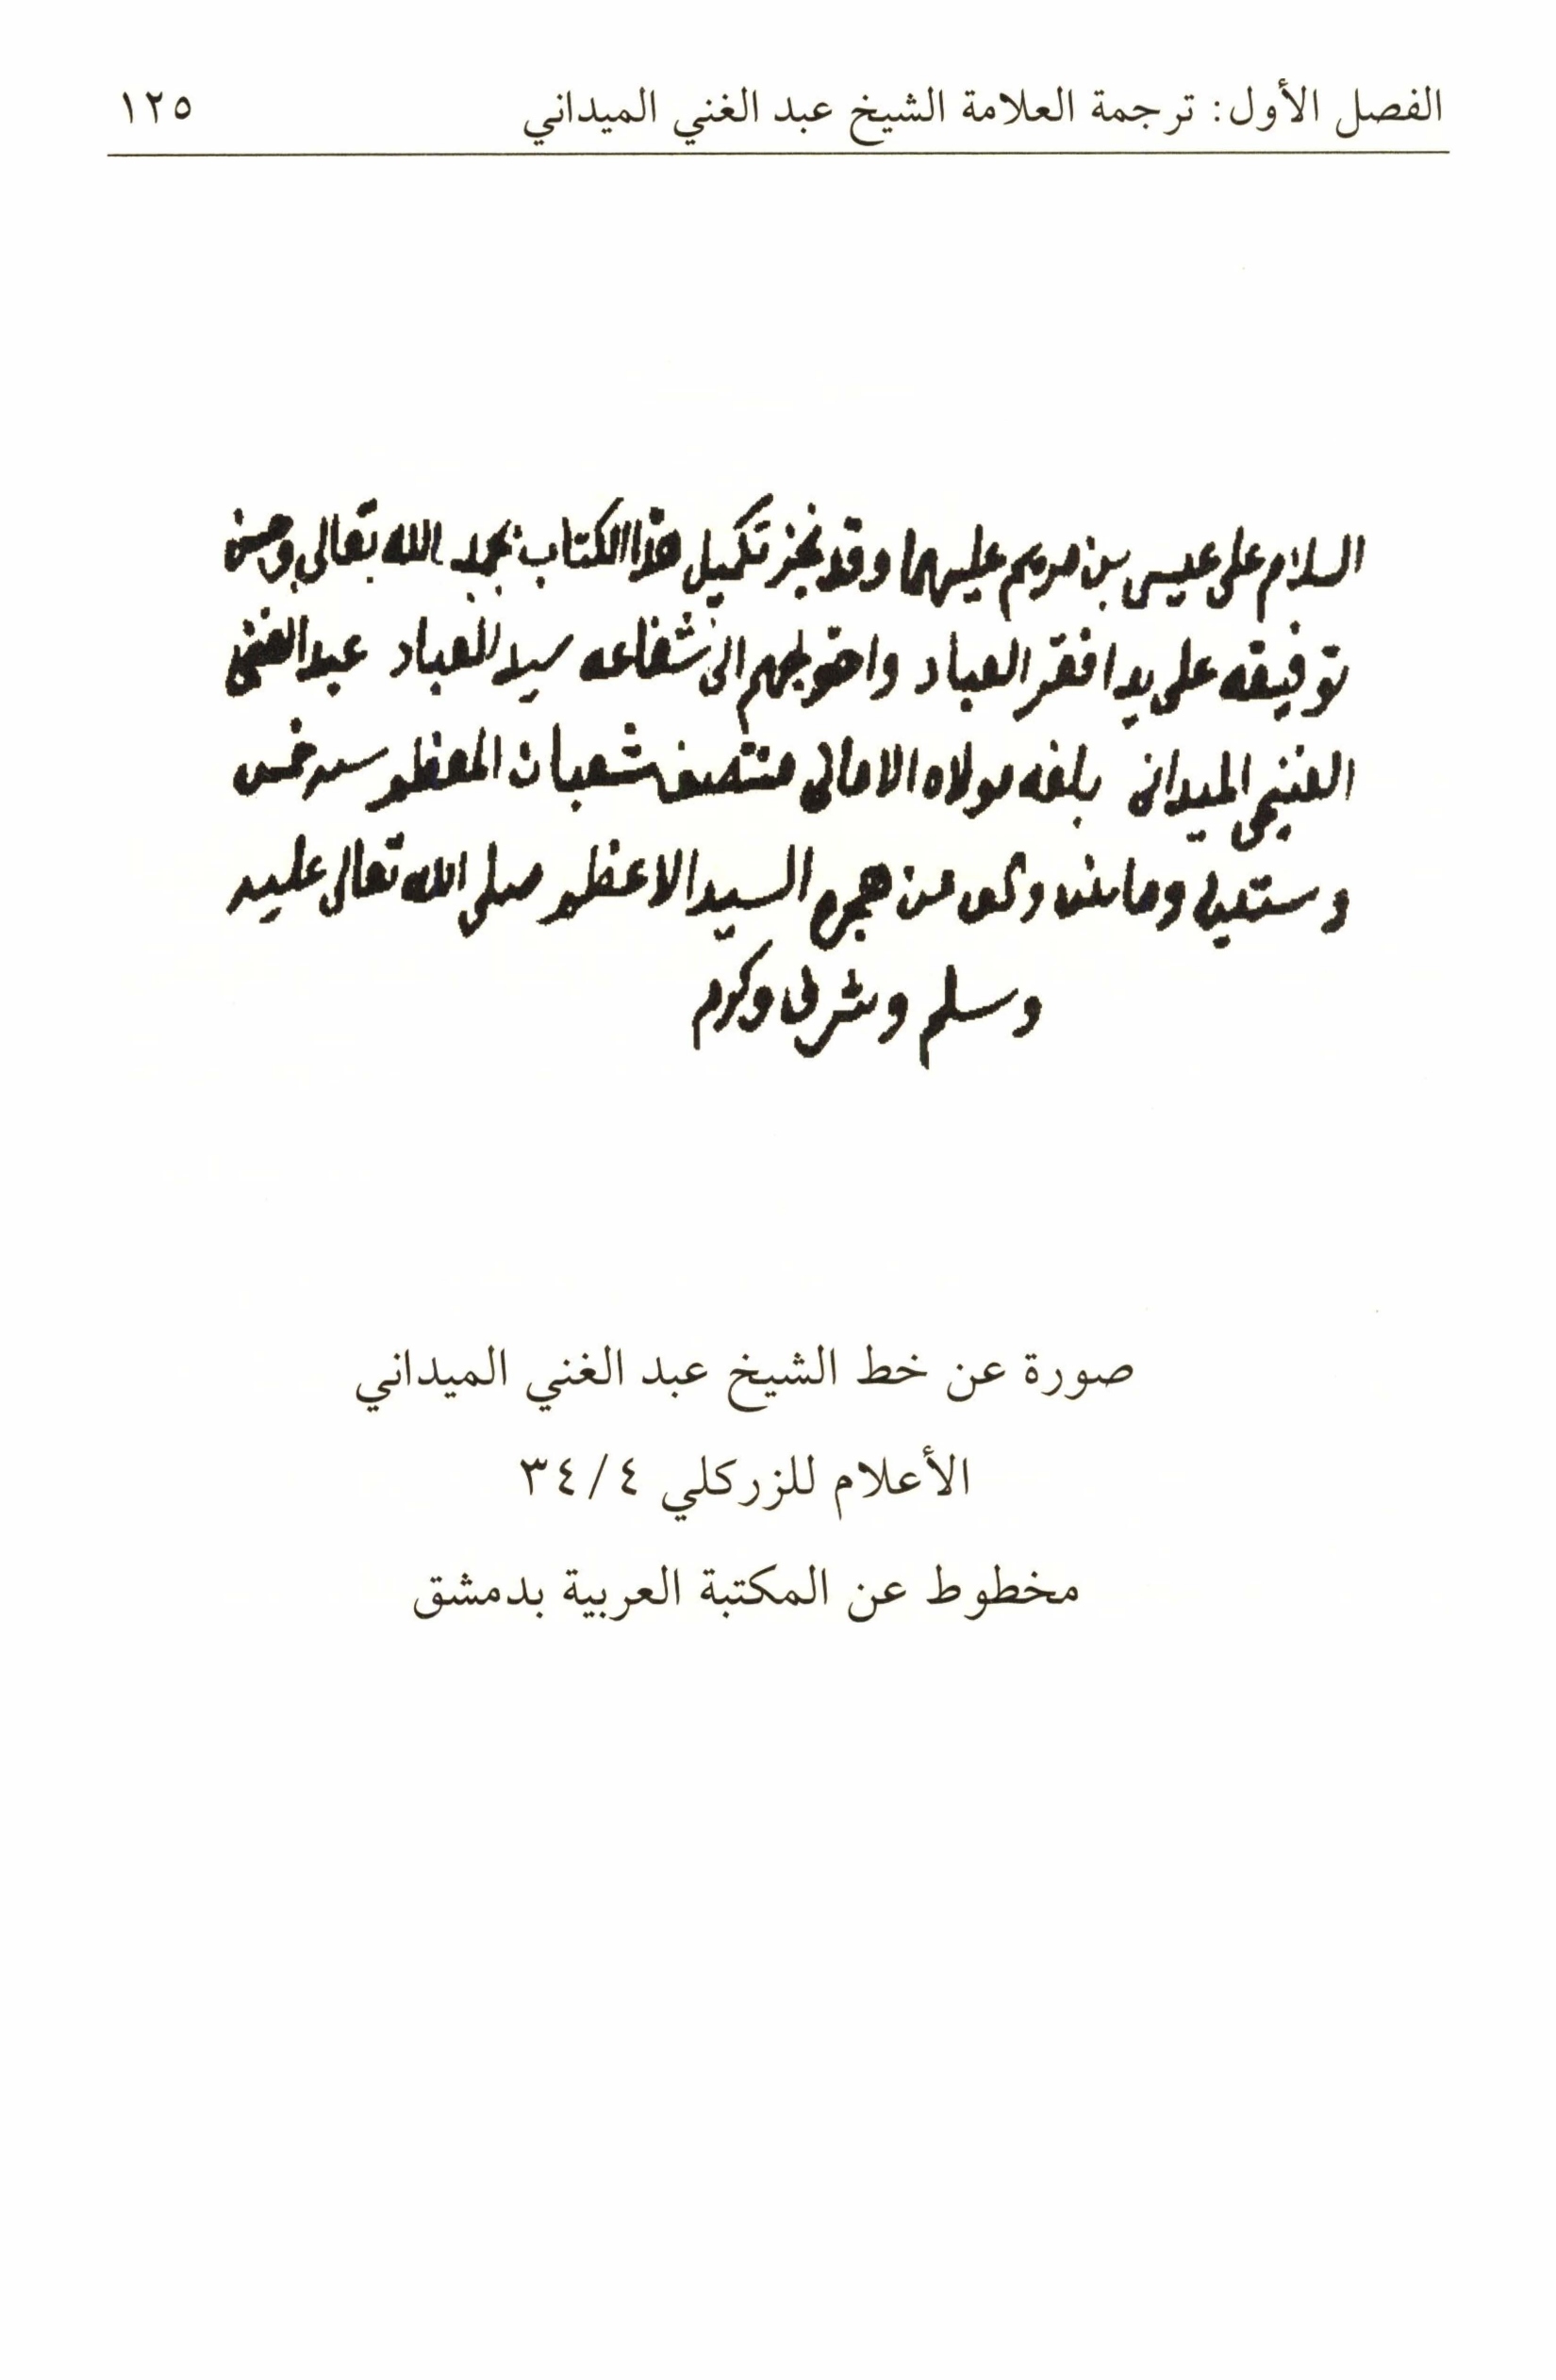 الفصل الأول: ترجمة العلامة الشيخ عبد الغني الميداني ١٢٥
السلام على عيسى بن مريم عليهما وقد نجز تكميل هذا الكتاب بحمد الله تعالى وحسن
توفيقه على يد افقر العباد واحوجهم الى شفاعه سيد العباد عبد الغني
الغنيمي الميداني بلغه مولاه الاماني منتصف شعبان المعظم سنه خمس
وستين وماىتىن والف من هجرة السيد الاعظم صلى الله تعالى عليه
وسلم وشرف وكرم
صورة عن خط الشيخ عبد الغني الميداني
الأعلام للزركلي ٣٤/٤
مخطوط عن المكتبة العربية بدمشق